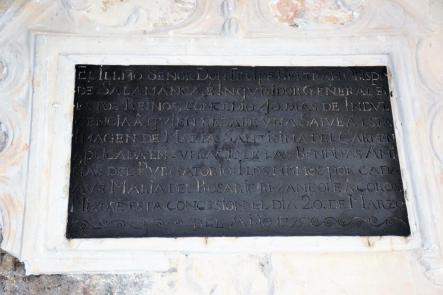 EL ILLMO SEÑOR DON FELIPE BERTRAN OBISPO
DE SALAMANCA, E INQUISIDOR GENERAL EN
ESTOS REINOS, CONCEDIO 40 DIAS DE INDUL
GENCIA A QUIEN REZARE UNA SALVE A ESTA
IMAGEN DE MARIA SANTISIMA DEL CARMEN
DE LAS BENDITAS ANI
MAS DEL PURGATORIO POR CADA
AVE MARIA DEL ROSARIO REZANDOLE A COROS
ESTA CONCESION EL DIA 20 DE MARZO
DEL AÑO